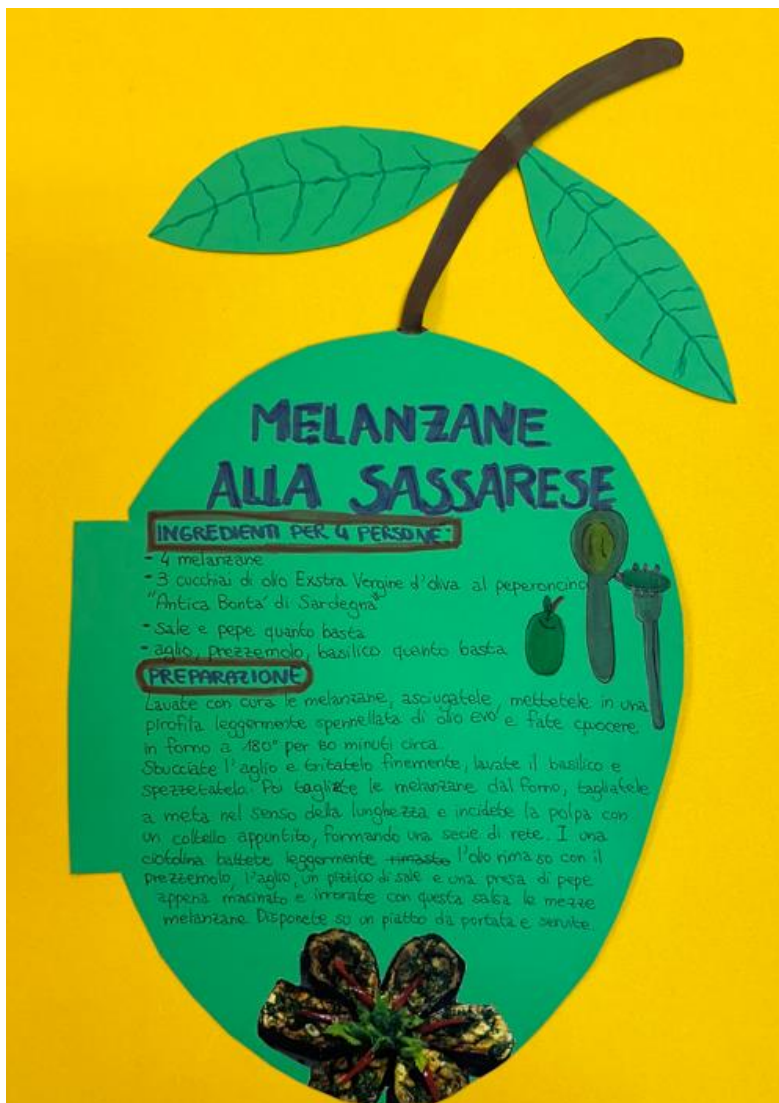 MELANZANE
ALLA SASSARESE
INGREDIENTI PER 4 PERSONE:
- 4 melanzane
- 3 cucchiai di olio Exstra Vergine d'oliva al peperoncino
"Antica Bontà di Sardegna"
- sale e pepe quanto basta
- aglio, prezzemolo, basilico quanto basta
PREPARAZIONE
Lavate con cura le melanzane, asciugatele, mettetele in una
pirofila leggermente spennellata di olio evo e fate cuocere
in forno a 180° per minuti circa.
Sbucciate l'aglio e tritatelo finemente, lavate il basilico e
spezzetatelo. Poi le melanzane dal forno, tagliatele
a meta nel senso della lunghezza e incidete la polpa con
un coltello appuntito, formando una secie di rete. I una
ciotolina battete leggermente rimasto l'olio rimaso con il
prezzemolo, l'aglio, un pizzico di sale e una presa di pepe
appena macinato e irrorate con questa salsa le mezze
melanzane. Disponete su un piatto da portata e servite.